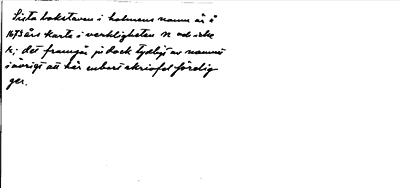 Sista bokstaven i holmens namn är å
1673 års karta i verkligheten n och icke
k; det framgår ju dock tydligt av namnet
i övrigt att här enbart skrivfel föreligger
ger.